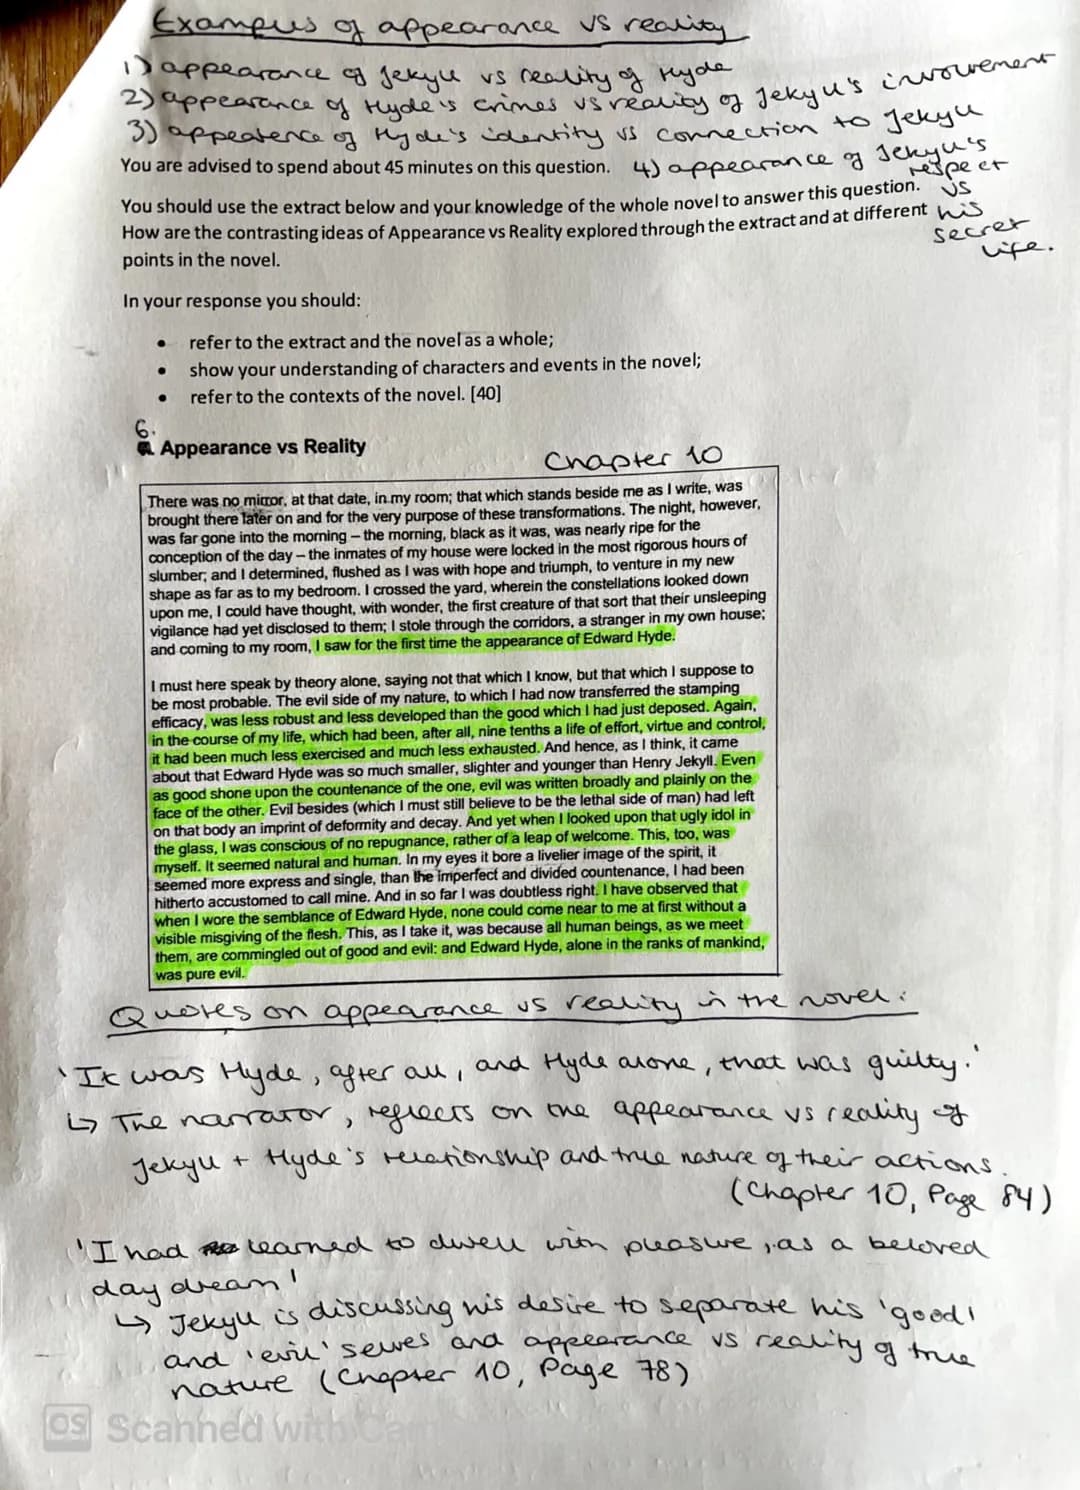 Examples of appearance vs reality
1) appearance of Jekyll vs reality of Hyde
2) appearance of Hyde's crimes vs reality of Jekyll's involvement
3) appearence of Hyde's identity vs connection to Jekyll
You are advised to spend about 45 minutes on this question. 4) appearance of Jekyll's
respect
vs
his
secret
life.
You should use the extract below and your knowledge of the whole novel to answer this question.
How are the contrasting ideas of Appearance vs Reality explored through the extract and at different
points in the novel.
In your response you should:
• refer to the extract and the novel as a whole;
• show your understanding of characters and events in the novel;
• refer to the contexts of the novel. [40]
6.
Appearance vs Reality
Chapter 10
There was no mirror, at that date, in my room; that which stands beside me as I write, was
brought there later on and for the very purpose of these transformations. The night, however,
was far gone into the morning – the morning, black as it was, was nearly ripe for the
conception of the day – the inmates of my house were locked in the most rigorous hours of
slumber; and I determined, flushed as I was with hope and triumph, to venture in my new
shape as far as to my bedroom. I crossed the yard, wherein the constellations looked down
upon me, I could have thought, with wonder, the first creature of that sort that their unsleeping
vigilance had yet disclosed to them; I stole through the corridors, a stranger in my own house;
and coming to my room, I saw for the first time the appearance of Edward Hyde.
I must here speak by theory alone, saying not that which I know, but that which I suppose to
be most probable. The evil side of my nature, to which I had now transferred the stamping
efficacy, was less robust and less developed than the good which I had just deposed. Again,
in the course of my life, which had been, after all, nine tenths a life of effort, virtue and control,
it had been much less exercised and much less exhausted. And hence, as I think, it came
about that Edward Hyde was so much smaller, slighter and younger than Henry Jekyll. Even
as good shone upon the countenance of the one, evil was written broadly and plainly on the
face of the other. Evil besides (which I must still believe to be the lethal side of man) had left
on that body an imprint of deformity and decay. And yet when I looked upon that ugly idol in
the glass, I was conscious of no repugnance, rather of a leap of welcome. This, too, was
myself. It seemed natural and human. In my eyes it bore a livelier image of the spirit, it
seemed more express and single, than the imperfect and divided countenance, I had been
hitherto accustomed to call mine. And in so far I was doubtless right. I have observed that
when I wore the semblance of Edward Hyde, none could come near to me at first without a
visible misgiving of the flesh. This, as I take it, was because all human beings, as we meet
them, are commingled out of good and evil: and Edward Hyde, alone in the ranks of mankind,
was pure evil.
Quotes on appearance vs reality in the novel:
'It was Hyde, after all, and Hyde alone, that was guilty.'
↳ The narrator, reflects on the appearance vs reality of
Jekyll + Hyde's relationship and true nature of their actions.
(Chapter 10, Page 84)
'I had learned to dwell with pleasure, as a beloved
day dream'
↳ Jekyll is discussing his desire to separate his 'good'
and 'evil' selves and appearance vs reality of true
nature (Chapter 10, Page 78)
CS Scanned with Cam